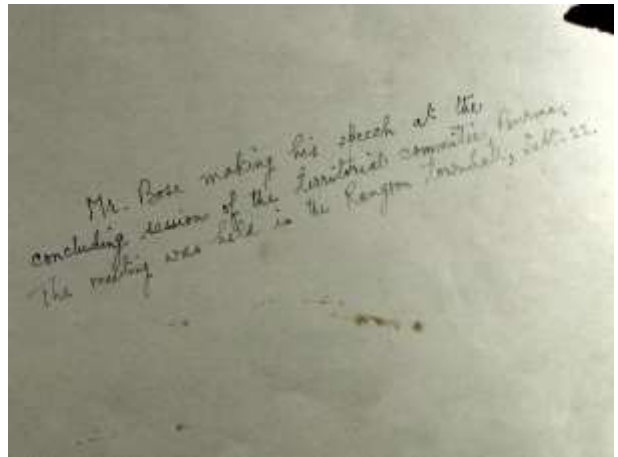 Mr. Bose making his speech at the
concluding session of the Territorial Committee, Burma,
The meeting was held in the Rangoon Townhall, Sept. 22.